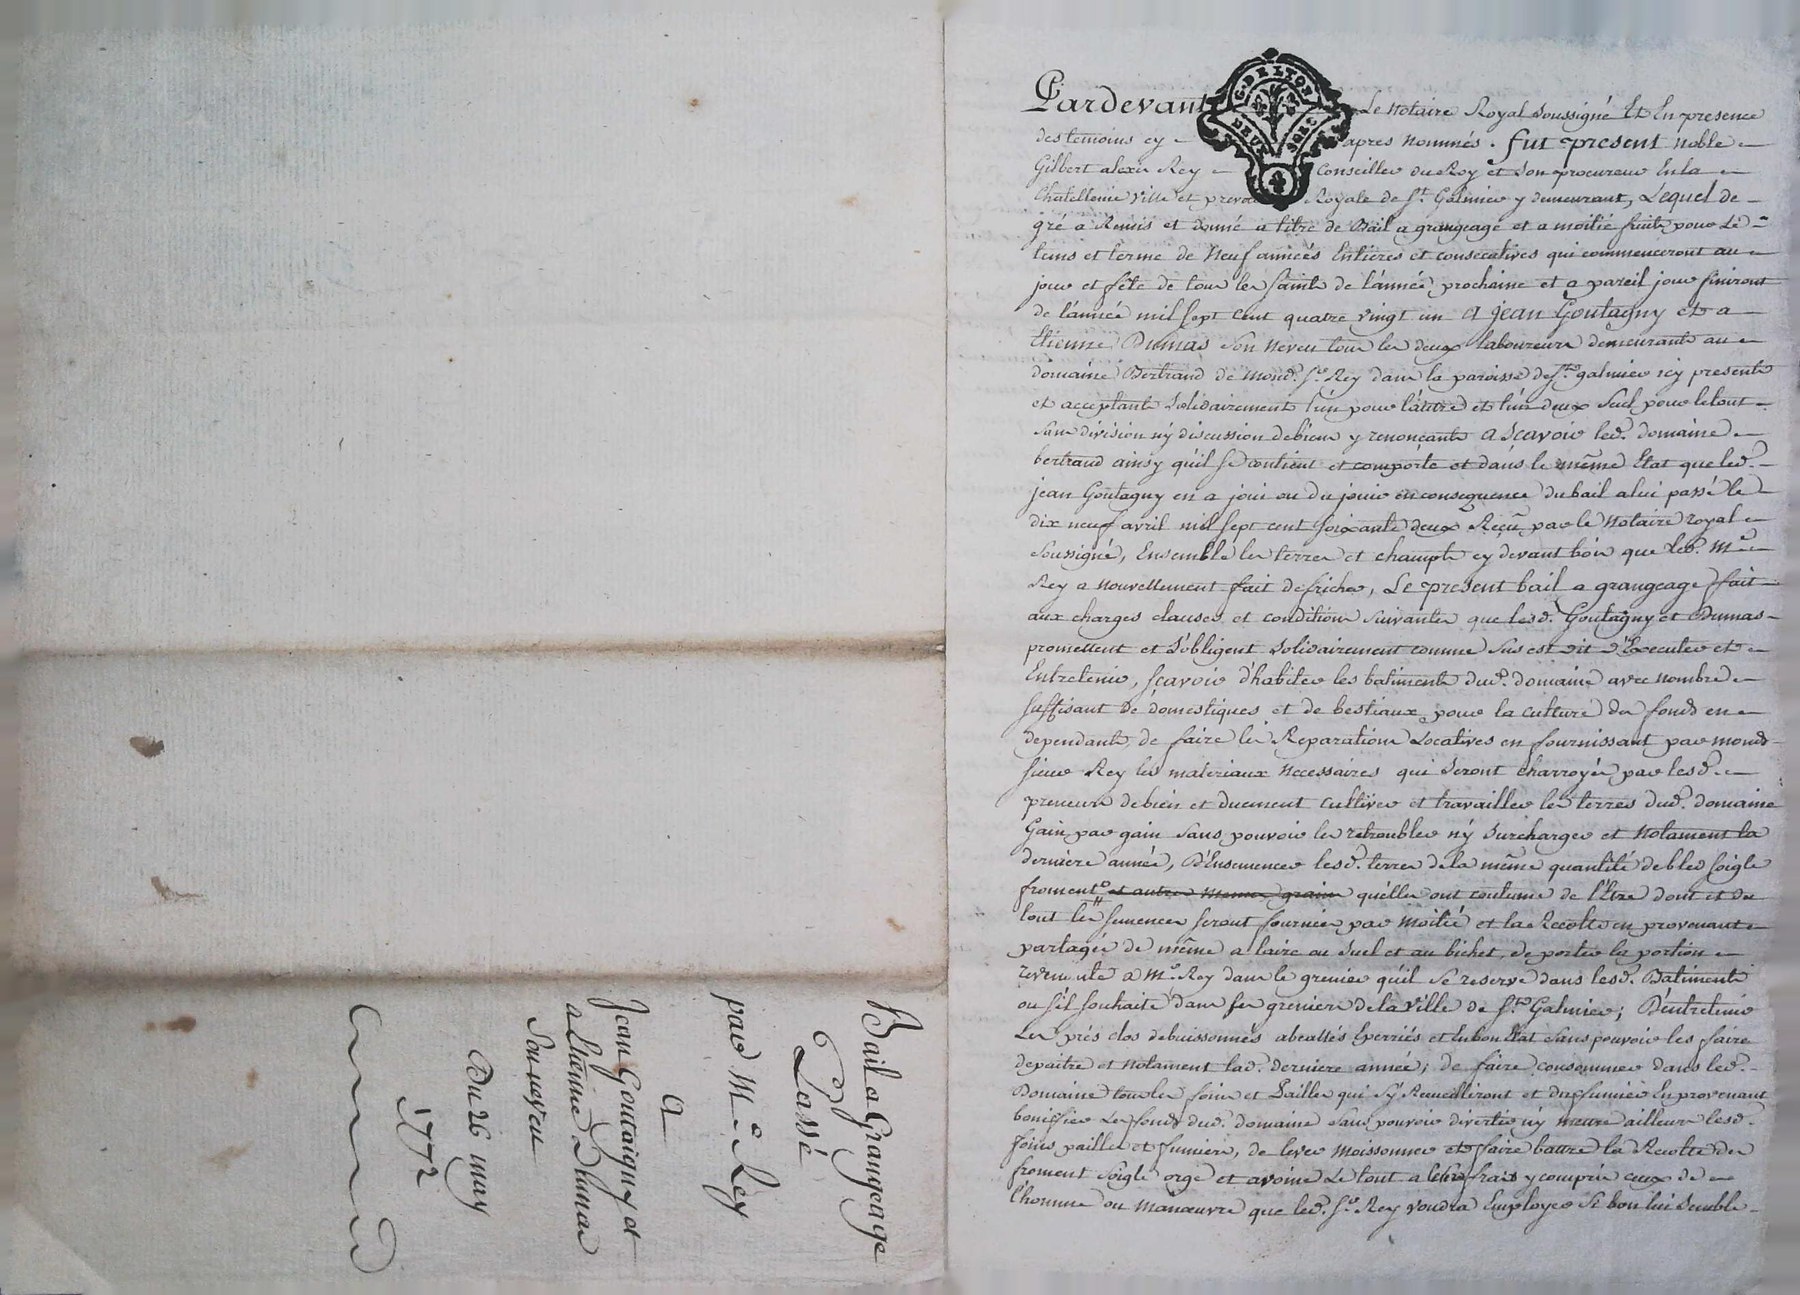 Bail a Grangeage
Passé
par Me Rey
a
Jean Goutaigny et
a Etienne Dumas
Son neveu
Du 26 may
1772
G. DE LYON
DEUX SOLS
4
Pardevant Le Notaire Royal Soussigné Et En presence
des temoins cy apres Nommés. fut present noble
Gilbert alexis Rey Conseiller du Roy et Son procureur En la
Chatellenie Ville et prevoté Royale de St. Galmier y demeurant, Lequel de
gré a Remis et donné a titre de Bail a grangeage et a moitié fruits pour Le
tems et terme de Neuf années Entieres et consecutives qui commenceront au
jour et fête de tous les Saints de l'année prochaine et a pareil jour finiront
de l'année mil Sept cent quatre vingt un a jean Goutagny et a
Etienne Dumas Son Neveu tous les deux laboureurs demeurants au
domaine Bertrand de mond. Sr. Rey dans la paroisse de St. galmier icy presents
et acceptants Solidairement l'un pour l'autre et l'un deux Seul pour le tout
Sans division n'y discussion de biens y renonçants a Scavoir led. domaine
bertrand ainsy qu'il Se contient et comporte et dans le même Etat que led.
jean Goutagny en a joui ou du jouir en consequence du bail a lui passé le
dix neuf avril mil Sept cent Soixante deux Reçu par le Notaire royal
Soussigné, Ensemble les terres et champts cy devant bois que Led. Me
Rey a nouvellement fait defricher, Le present bail a grangeage fait
aux charges clauses et conditions Suivantes que lesd. Goutagny et Dumas
promettent et S'obligent Solidairement comme Sus est dit d'Executer et
Entretenir, Scavoir d'habiter les batiments dud. domaine avec nombre
Suffisant de domestiques et de bestiaux pour la culture des fonds en
dependants, de faire les Reparations Locatives en fournissant par mond
Sieur Rey les materiaux Necessaires qui Seront charroyés par lesd.
preneurs de bien et duement cultiver et travailler les terres dud. domaine
Gain par gain Sans pouvoir les retroubler n'y Surcharger et Notament la
derniere année, D'Ensemencer lesd. terres de la même quantité de bled Soigle
froment et autres menus grains qu'elles ont coutume de l'Etre dont et du
tout les Semences Seront fournies par Moitié et la Recolte en provenante
partagée de même a laire ou Suel et au bichet, de porter la portion
revenante a Mr. Rey dans le grenier qu'il Se reserve dans lesd. Batiments
ou S'il Souhaite dans Ses greniers de la Ville de St. Galmier; D'entretenir
Les prés clos debuissonnés Eperriés et En bon Etat Sans pouvoir les faire
depaitre et Notament lad. derniere année; de faire consommer dans led.
Domaine tous les foins et Pailles qui S'y Recueilliront et des fumiers En provenant
bonifier Les fonds dud. domaine Sans pouvoir divertir n'y mener ailleurs lesd.
foins pailles et fumiers, de lever Moissonner et faire battre la Recolte des
froment Soigle orge et avoine Le tout a leurs frais y compris ceux de
l'homme ou manœuvre que led. Sr. Rey voudra Employer Si bon lui Semble